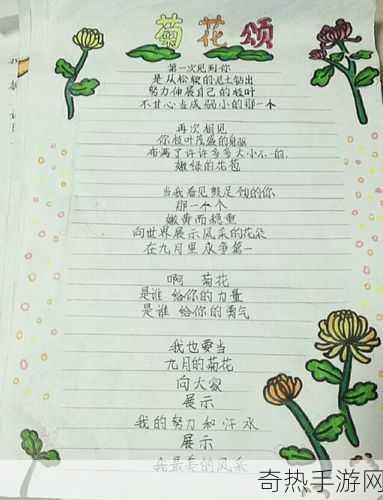 菊花颂
第一次见到你
是从松软的泥土钻出
努力伸展自己的枝叶
不甘心当成弱小的那一个
再次相见
你枝叶茂盛的身躯
布满了许许多多大小不一的,
嫩绿的花苞
当我看见鼓足领的你
那一个个
嫩黄而稳重
向世界展示风采的花朵
在九月里 欲争第一
啊 菊花
是谁 给你的力量
是谁 给你的勇气
我也要当
九月的菊花
向大家
展示
我的努力和汗水
展示
我最美的风采
奇热手游网